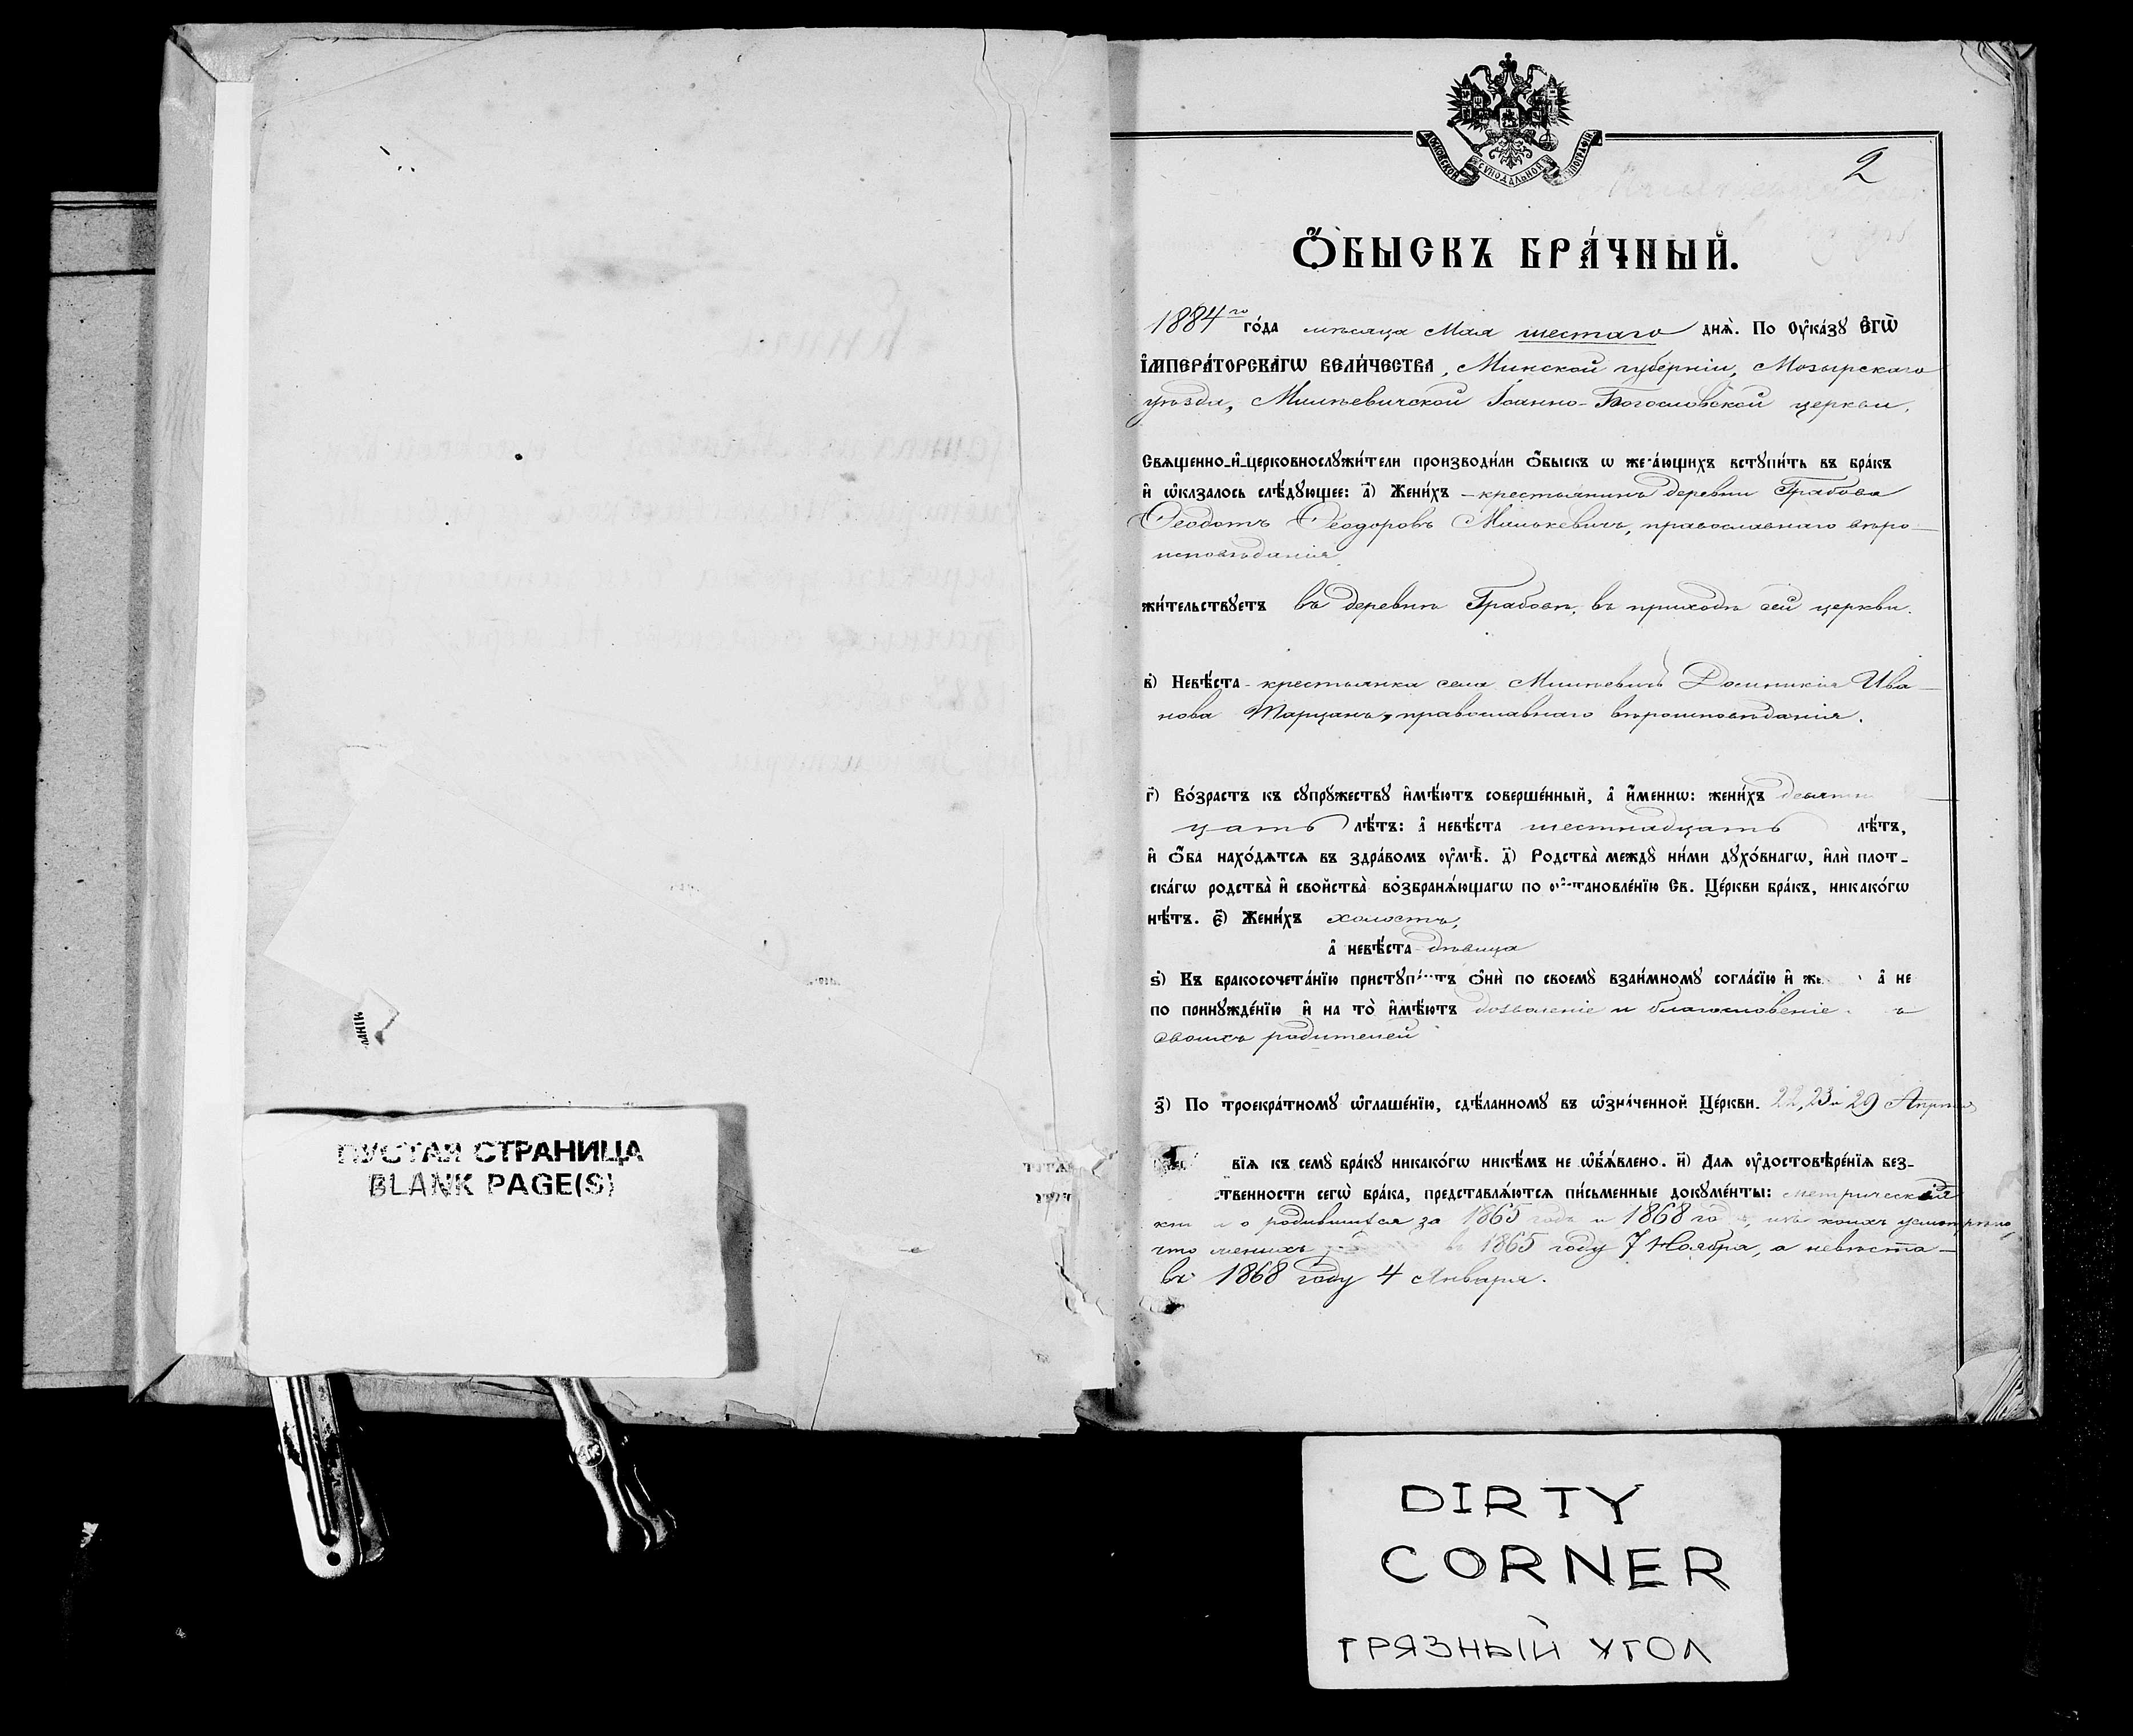 МОСКОВСКОЙ СѴНОДАЛЬНОЙ ТИПОГРАФІИ
2
Ѻ҆БЫСКЪ БРА́ЧНЫЙ.
1884го го́да мѣсяца Мая шестаго днѧ̀. По Оу҆ка́зꙋ Є҆гѡ̀
І҆мпера́торскагѡ вели́чества, Минской губерніи, Мозырскаго
уѣзда, Іоанно-Богословской церкви,
Свѧщенно-и҆-церковнослꙋжи́тели производи́ли ѻ҆́быскъ ѡ же а́ющихъ встꙋпи́ть въ бра́къ
и҆ ѡ҆казалось слѣ́дꙋющее: а҃) Жени́хъ - крестьянинъ деревни Грабова
Ѳеодотъ Ѳеодоровъ Милькевичъ, православнаго вѣро-
исповѣданія
жи́тельствꙋетъ въ деревнѣ Грабовѣ, въ приходѣ сей церкви.
в҃) Невѣ́ста - крестьянка села Доминикія Ива-
нова православнаго вѣроисповѣданія.
г҃) Во́зрастъ къ сꙋпрꙋ́жествꙋ и҆мѣ́ютъ соверше́нный, а҆ и҆́меннѡ: жени́хъ девятна
цать лѣ́тъ: а҆ невѣ́ста шестнадцать лѣ́тъ,
и҆ ѻ҆́ба нахо́дѧтсѧ въ здра́вомъ оу҆мѣ̀. д҃) Родства̀ междꙋ̀ ни́ми дꙋхо́внагѡ, и҆лѝ плот-
ска́гѡ родства̀ и҆ сво́йства̀ возбранѧ́ющагѡ по оу҆ тановле́нїю Св. Це́ркви бра́къ, никако́гѡ
нѣ́тъ. є҃) Жени́хъ холостъ,
а҆ невѣ́ста - дѣвица
ѕ҃) Къ бракосочета́нїю пристꙋп тъ ѻ҆нѝ по своемꙋ̀ взаи́мномꙋ согла́сїю и҆ же а҆ не
по принꙋжде́нїю и҆ на то̀ и҆мѣ́ютъ дозволеніе и благословеніе ъ
своихъ родителей
з҃) По троекра́тномꙋ ѡ҆глаше́нїю, сдѣ́ланномꙋ въ ѡ҆зна́ченной Це́ркви. 22, 23 и 29 Апрѣля
вїѧ къ семꙋ̀ бра́кꙋ никако́гѡ никѣ́мъ не ѡ҆б̾ѧ́влено. и҃) Длѧ оу҆достовѣре́нїѧ без-
ственности сегѡ̀ бра́ка, представлѧ́ютсѧ пи́сьменные докꙋме́нты: метрическія
кни о родившихся за 1865 годъ и 1868 го , изъ коихъ усмотрѣно,
что женихъ въ 1865 году 7 Ноября, а невѣста -
въ 1868 году 4 Января.
ПУСТАЯ СТРАНИЦА
BLANK PAGE(S)
DIRTY
CORNER
ГРЯЗНЫЙ УГОЛ